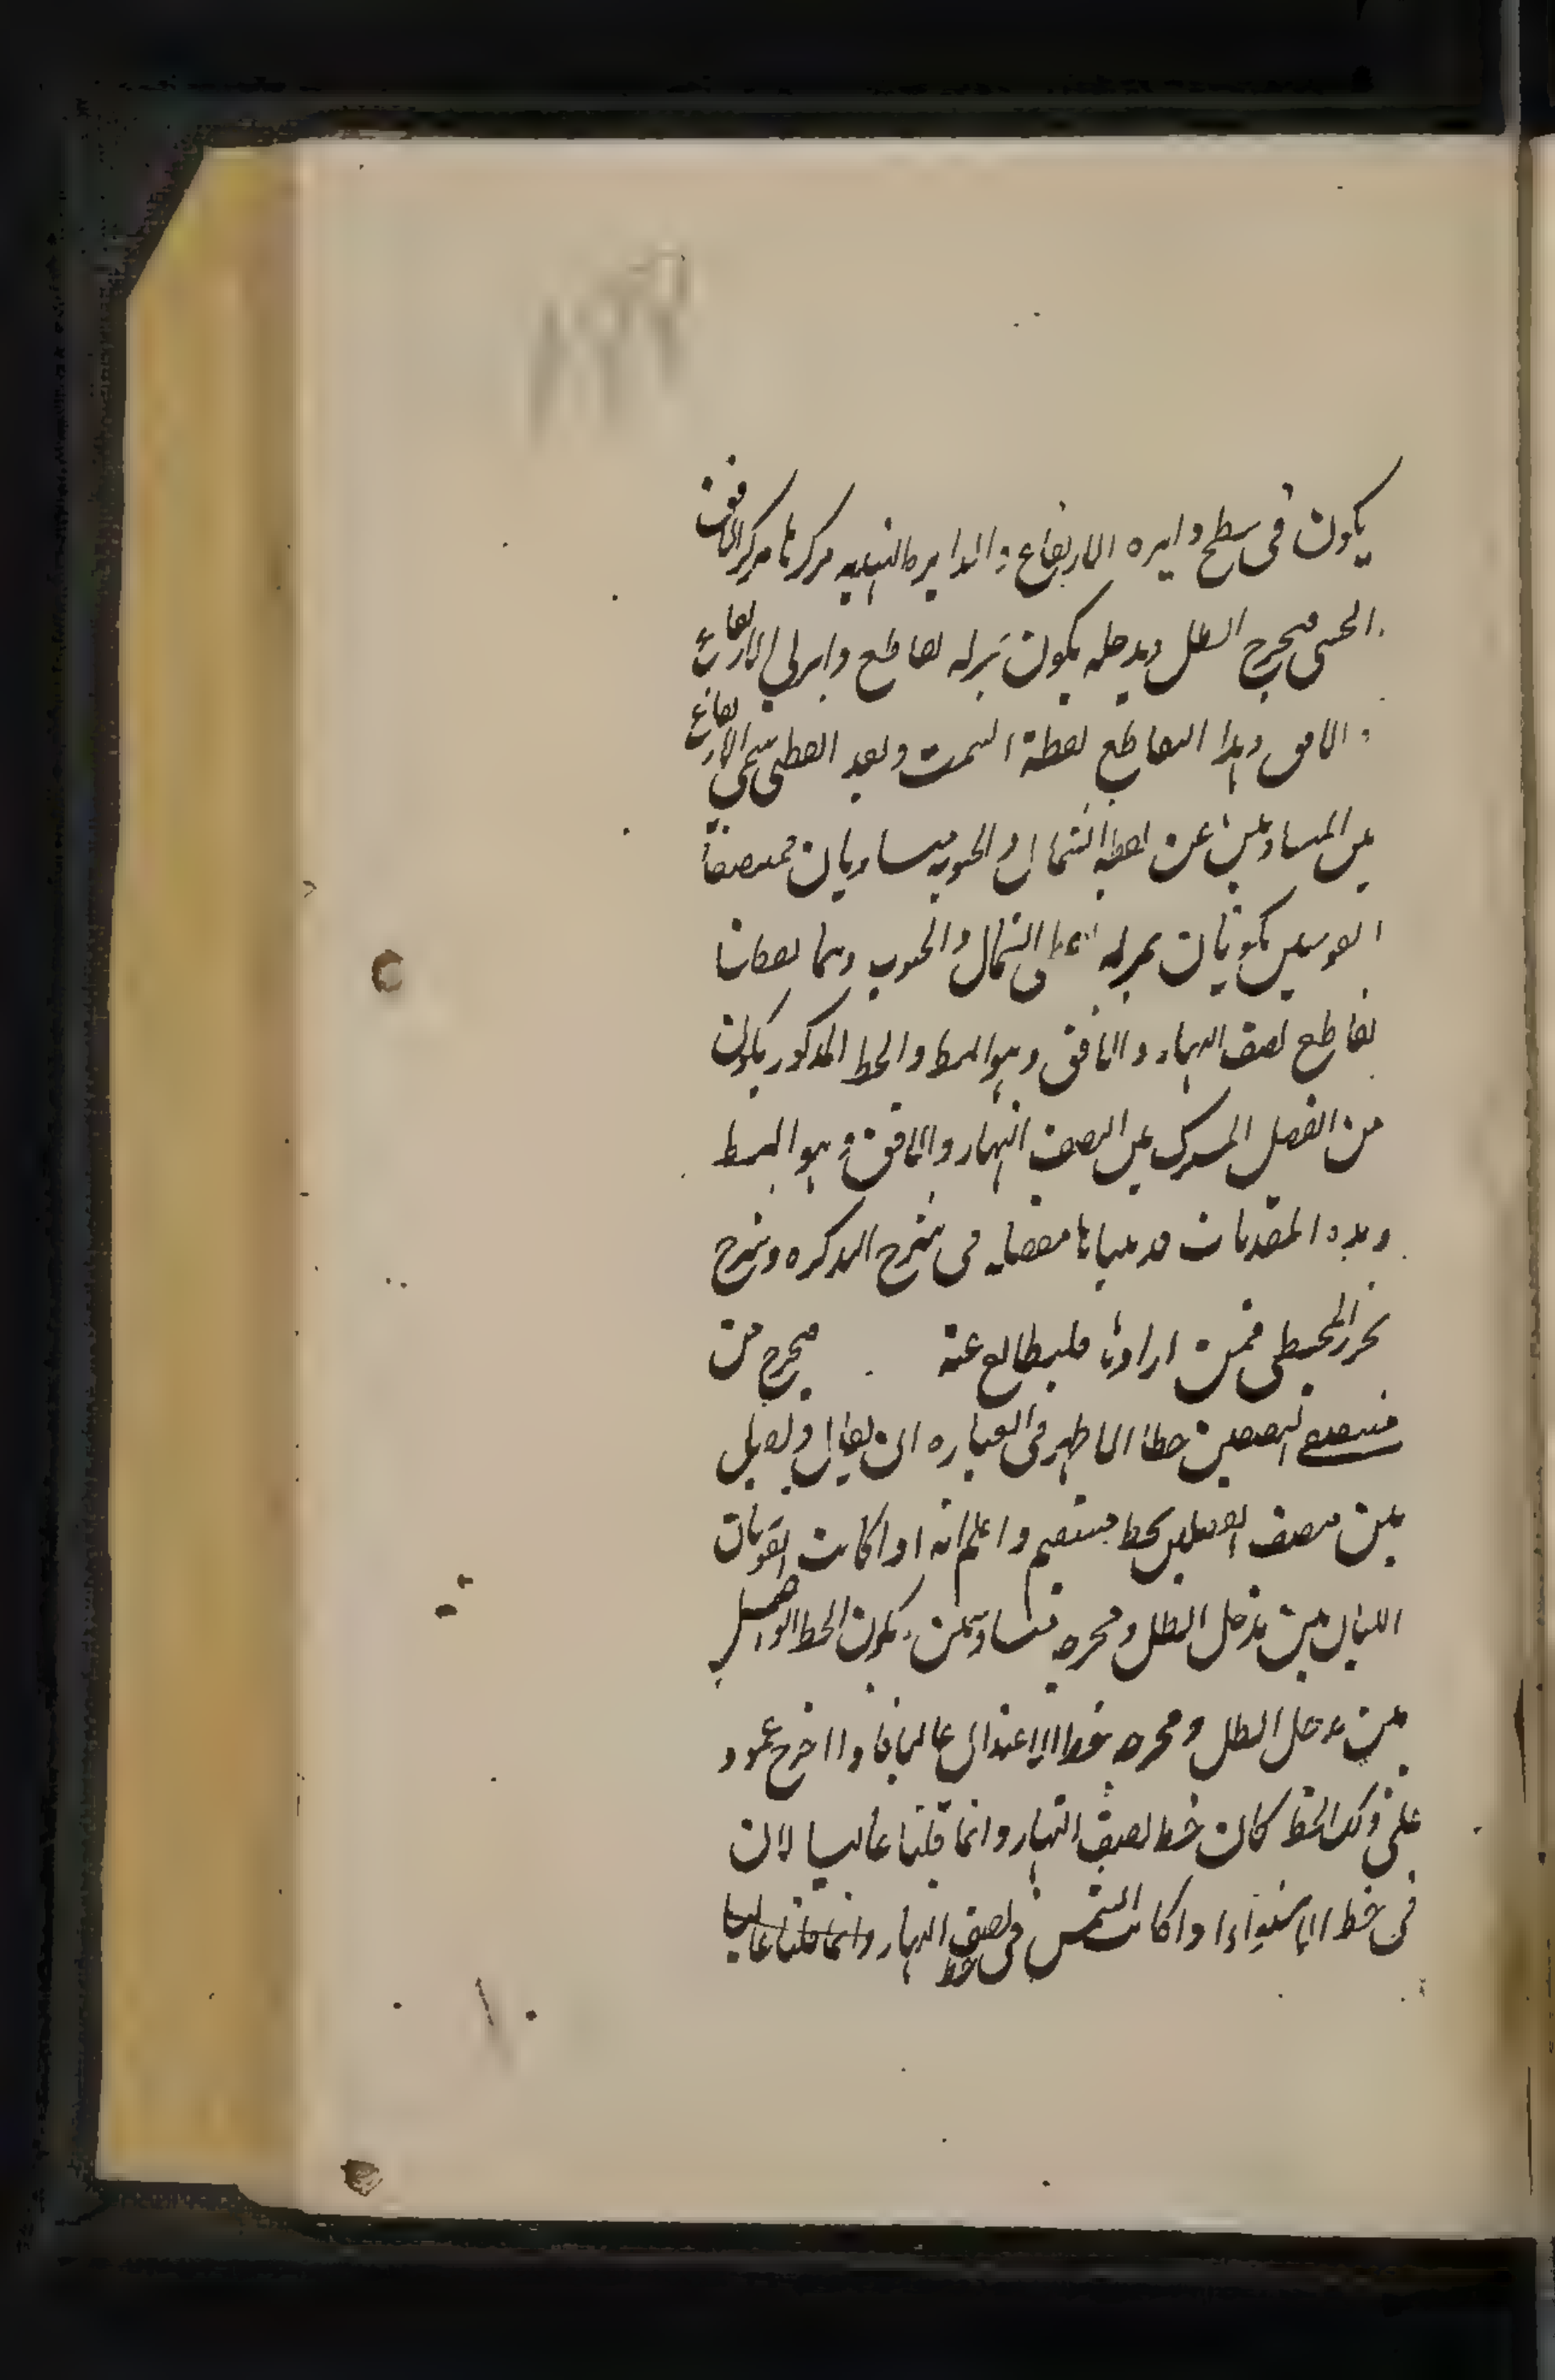 يكون في سطح دايره الارتفاع و الدايره الهنديه مركزها مركز الافق
الحسي فمخرج الظل ومدخله يكون بمنزله تقاطع دايرتي الارتفاع
و الافق وهذا التقاطع نقطة السمت وبعد نقطتي سمتي الارتفاع
ين المتساويين عن نقطة الشمال والجنوب متساويان فمنتصفا
القوسين يكونان بمنزله نقطتي الشمال والجنوب وهما نقطتا
تقاطع نصف النهار والافق وهو المط والخط المذكور يكون
من الفصل المشترك بين النصف النهار والافق وهو المط
وهذه المقدمات قد بيناها مفصله في شرح التذكره وشرح
تحرير المجسطي فمن ارادها فليطالع عنه فيخرج من
منتصف النصفين خطا الاظهر في العباره ان يقال ونصل
بين منتصف القوسين بخط مستقيم واعلم انه اذا كانت القوسان
اللتان بين مدخل الظل ومخرجه متساويتين يكون الخط الواصل
بين مدخل الظل ومخرجه خط الاعتدال غالبا فاذا اخرج عمود
على ذلك الخط كان خط نصف النهار وانما قلنا غالبا لان
في خط الاستواء اذا كانت الشمس في نصف النهار وانما قلنا غالبا
خط